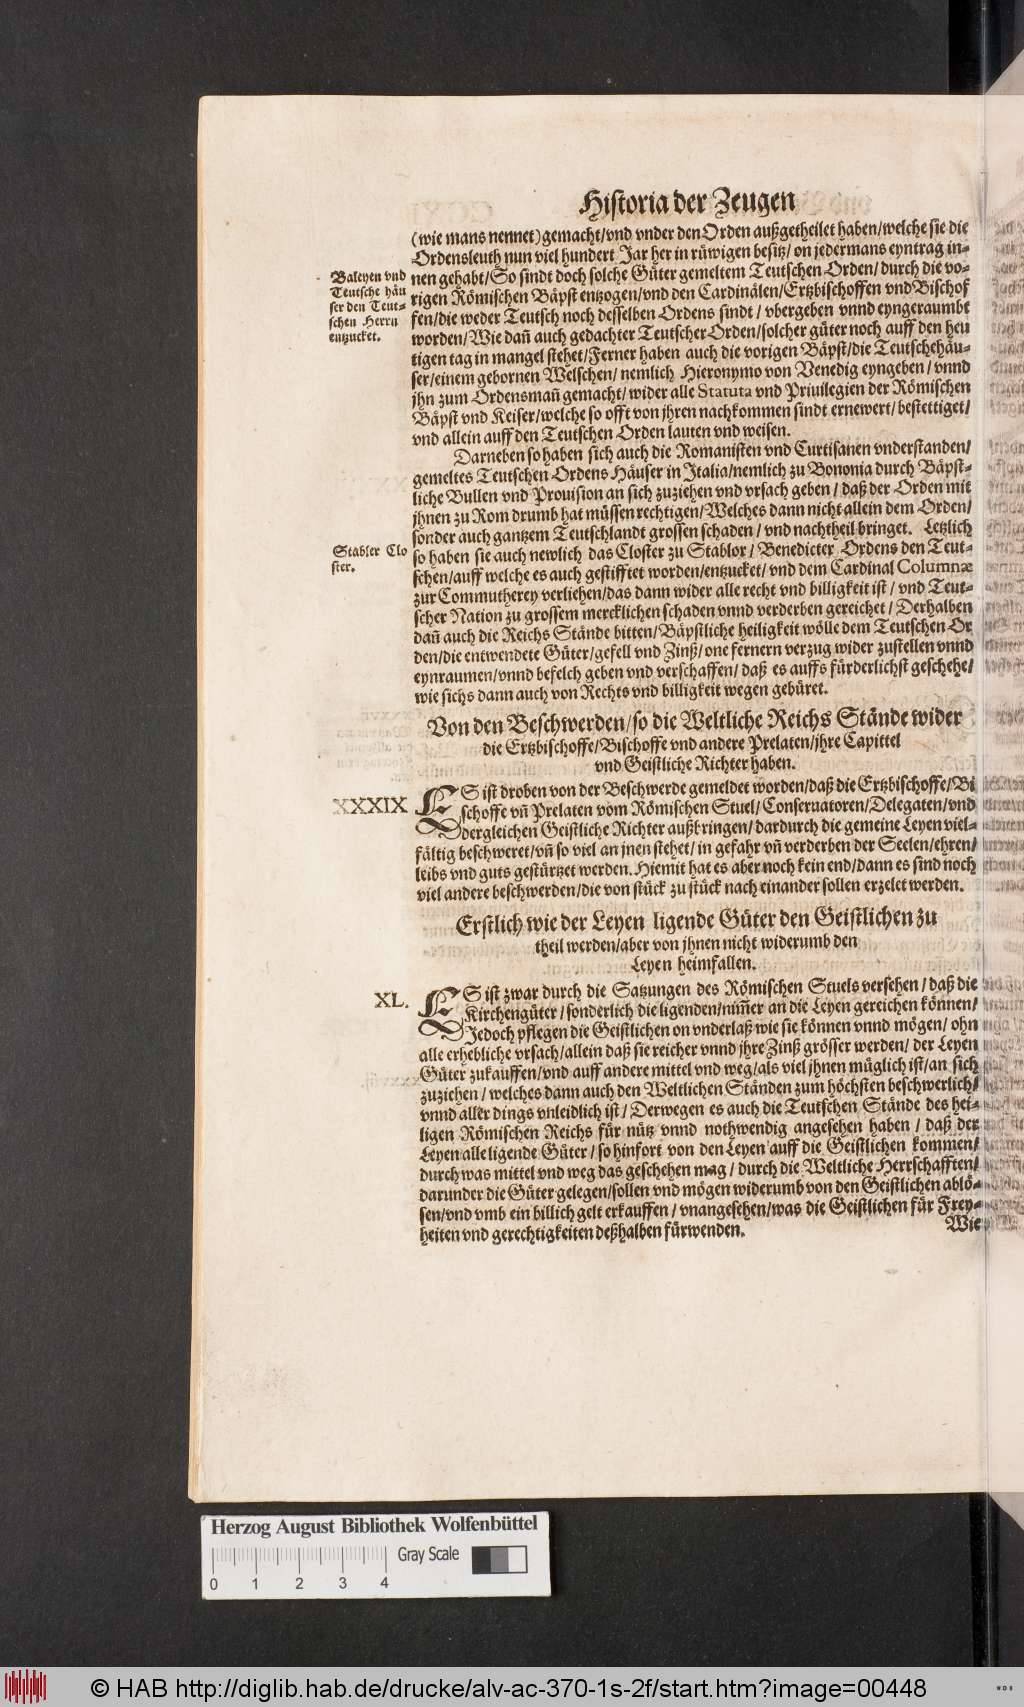 Historia der Zeugen
(wie mans nennet) gemacht/vnd vnder den Orden außgetheilet haben/welche sie die
Ordensleuth nun viel hundert Jar her in rüwigen besitz/ on jedermans eyntrag in-
nen gehabt/So sindt doch solche Güter gemeltem Teutschen Orden/ durch die vo-
rigen Römischen Bäpst entzogen/vnd den Cardinälen/Ertzbischoffen vnd Bischof
fen/die weder Teutsch noch desselben Ordens sindt / vbergeben vnnd eyngeraumbt
worden/Wie dañ auch gedachter Teutscher Orden/solcher güter noch auff den heu
tigen tag in mangel stehet/Ferner haben auch die vorigen Bäpst/die Teutschehäu-
ser/einem gebornen Welschen/ nemlich Hieronymo von Venedig eyngeben / vnnd
jhn zum Ordensmañ gemacht/wider alle Statuta vnd Priuilegien der Römischen
Bäpst vnd Keiser/welche so offt von jhren nachkommen sindt ernewert/bestettiget/
vnd allein auff den Teutschen Orden lauten vnd weisen.
Baleyen vnd
Teutsche häu
ser den Teut-
schen Herrn
entzucket.
Darneben so haben sich auch die Romanisten vnd Curtisanen vnderstanden/
gemeltes Teutschen Ordens Häuser in Italia/nemlich zu Bononia durch Bäpst-
liche Bullen vnd Prouision an sich zuziehen vnd vrsach geben / daß der Orden mit
jhnen zu Rom drumb hat müssen rechtigen/Welches dann nicht allein dem Orden/
sonder auch gantzem Teutschlandt grossen schaden / vnd nachtheil bringet. Letzlich
so haben sie auch newlich das Closter zu Stablor / Benedicter Ordens den Teut-
schen/auff welche es auch gestifftet worden/entzucket/ vnd dem Cardinal Columnæ
zur Commutherey verliehen/das dann wider alle recht vnd billigkeit ist / vnd Teut-
scher Nation zu grossem mercklichen schaden vnnd verderben gereichet / Derhalben
dañ auch die Reichs Stände bitten/Bäpstliche heiligkeit wölle dem Teutschen Or
den/die entwendete Güter/gefell vnd Zinß/one fernern verzug wider zustellen vnnd
eynraumen/vnnd befelch geben vnd verschaffen/ daß es auffs fürderlichst geschehe/
wie sichs dann auch von Rechts vnd billigkeit wegen gebüret.
Stabler Clo
ster.
Von den Beschwerden/so die Weltliche Reichs Stände wider
die Ertzbischoffe/Bischoffe vnd andere Prelaten/jhre Capittel
vnd Geistliche Richter haben.
XXXIX
ES ist droben von der Beschwerde gemeldet worden/daß die Ertzbischoffe/Bi
schoffe vñ Prelaten vom Römischen Stuel/Conseruatoren/Delegaten/vnd
dergleichen Geistliche Richter außbringen/dardurch die gemeine Leyen viel-
fältig beschweret/vñ so viel an jnen stehet/ in gefahr vñ verderben der Seelen/ehren/
leibs vnd guts gestürtzet werden. Hiemit hat es aber noch kein end/dann es sind noch
viel andere beschwerden/die von stück zu stück nach einander sollen erzelet werden.
Erstlich wie der Leyen ligende Güter den Geistlichen zu
theil werden/aber von jhnen nicht widerumb den
Leyen heimfallen.
XL.
ES ist zwar durch die Satzungen des Römischen Stuels versehen / daß die
Kirchengüter / sonderlich die ligenden/nim̃er an die Leyen gereichen können/
Jedoch pflegen die Geistlichen on vnderlaß wie sie können vnnd mögen/ ohn
alle erhebliche vrsach/allein daß sie reicher vnnd jhre Zinß grösser werden/ der Leyen
Güter zukauffen/vnd auff andere mittel vnd weg/als viel jhnen müglich ist/an sich
zuziehen / welches dann auch den Weltlichen Ständen zum höchsten beschwerlich/
vnnd aller dings vnleidlich ist / Derwegen es auch die Teutschen Stände des hei-
ligen Römischen Reichs für nütz vnnd nothwendig angesehen haben / daß der
Leyen alle ligende Güter / so hinfort von den Leyen auff die Geistlichen kommen/
durch was mittel vnd weg das geschehen mag / durch die Weltliche Herrschafften/
darunder die Güter gelegen/sollen vnd mögen widerumb von den Geistlichen ablö-
sen/vnd vmb ein billich gelt erkauffen / vnangesehen/was die Geistlichen für Frey-
heiten vnd gerechtigkeiten deßhalben fürwenden.
Wie
Herzog August Bibliothek Wolfenbüttel
Gray Scale
0 1 2 3 4
© HAB http://diglib.hab.de/drucke/alv-ac-370-1s-2f/start.htm?image=00448